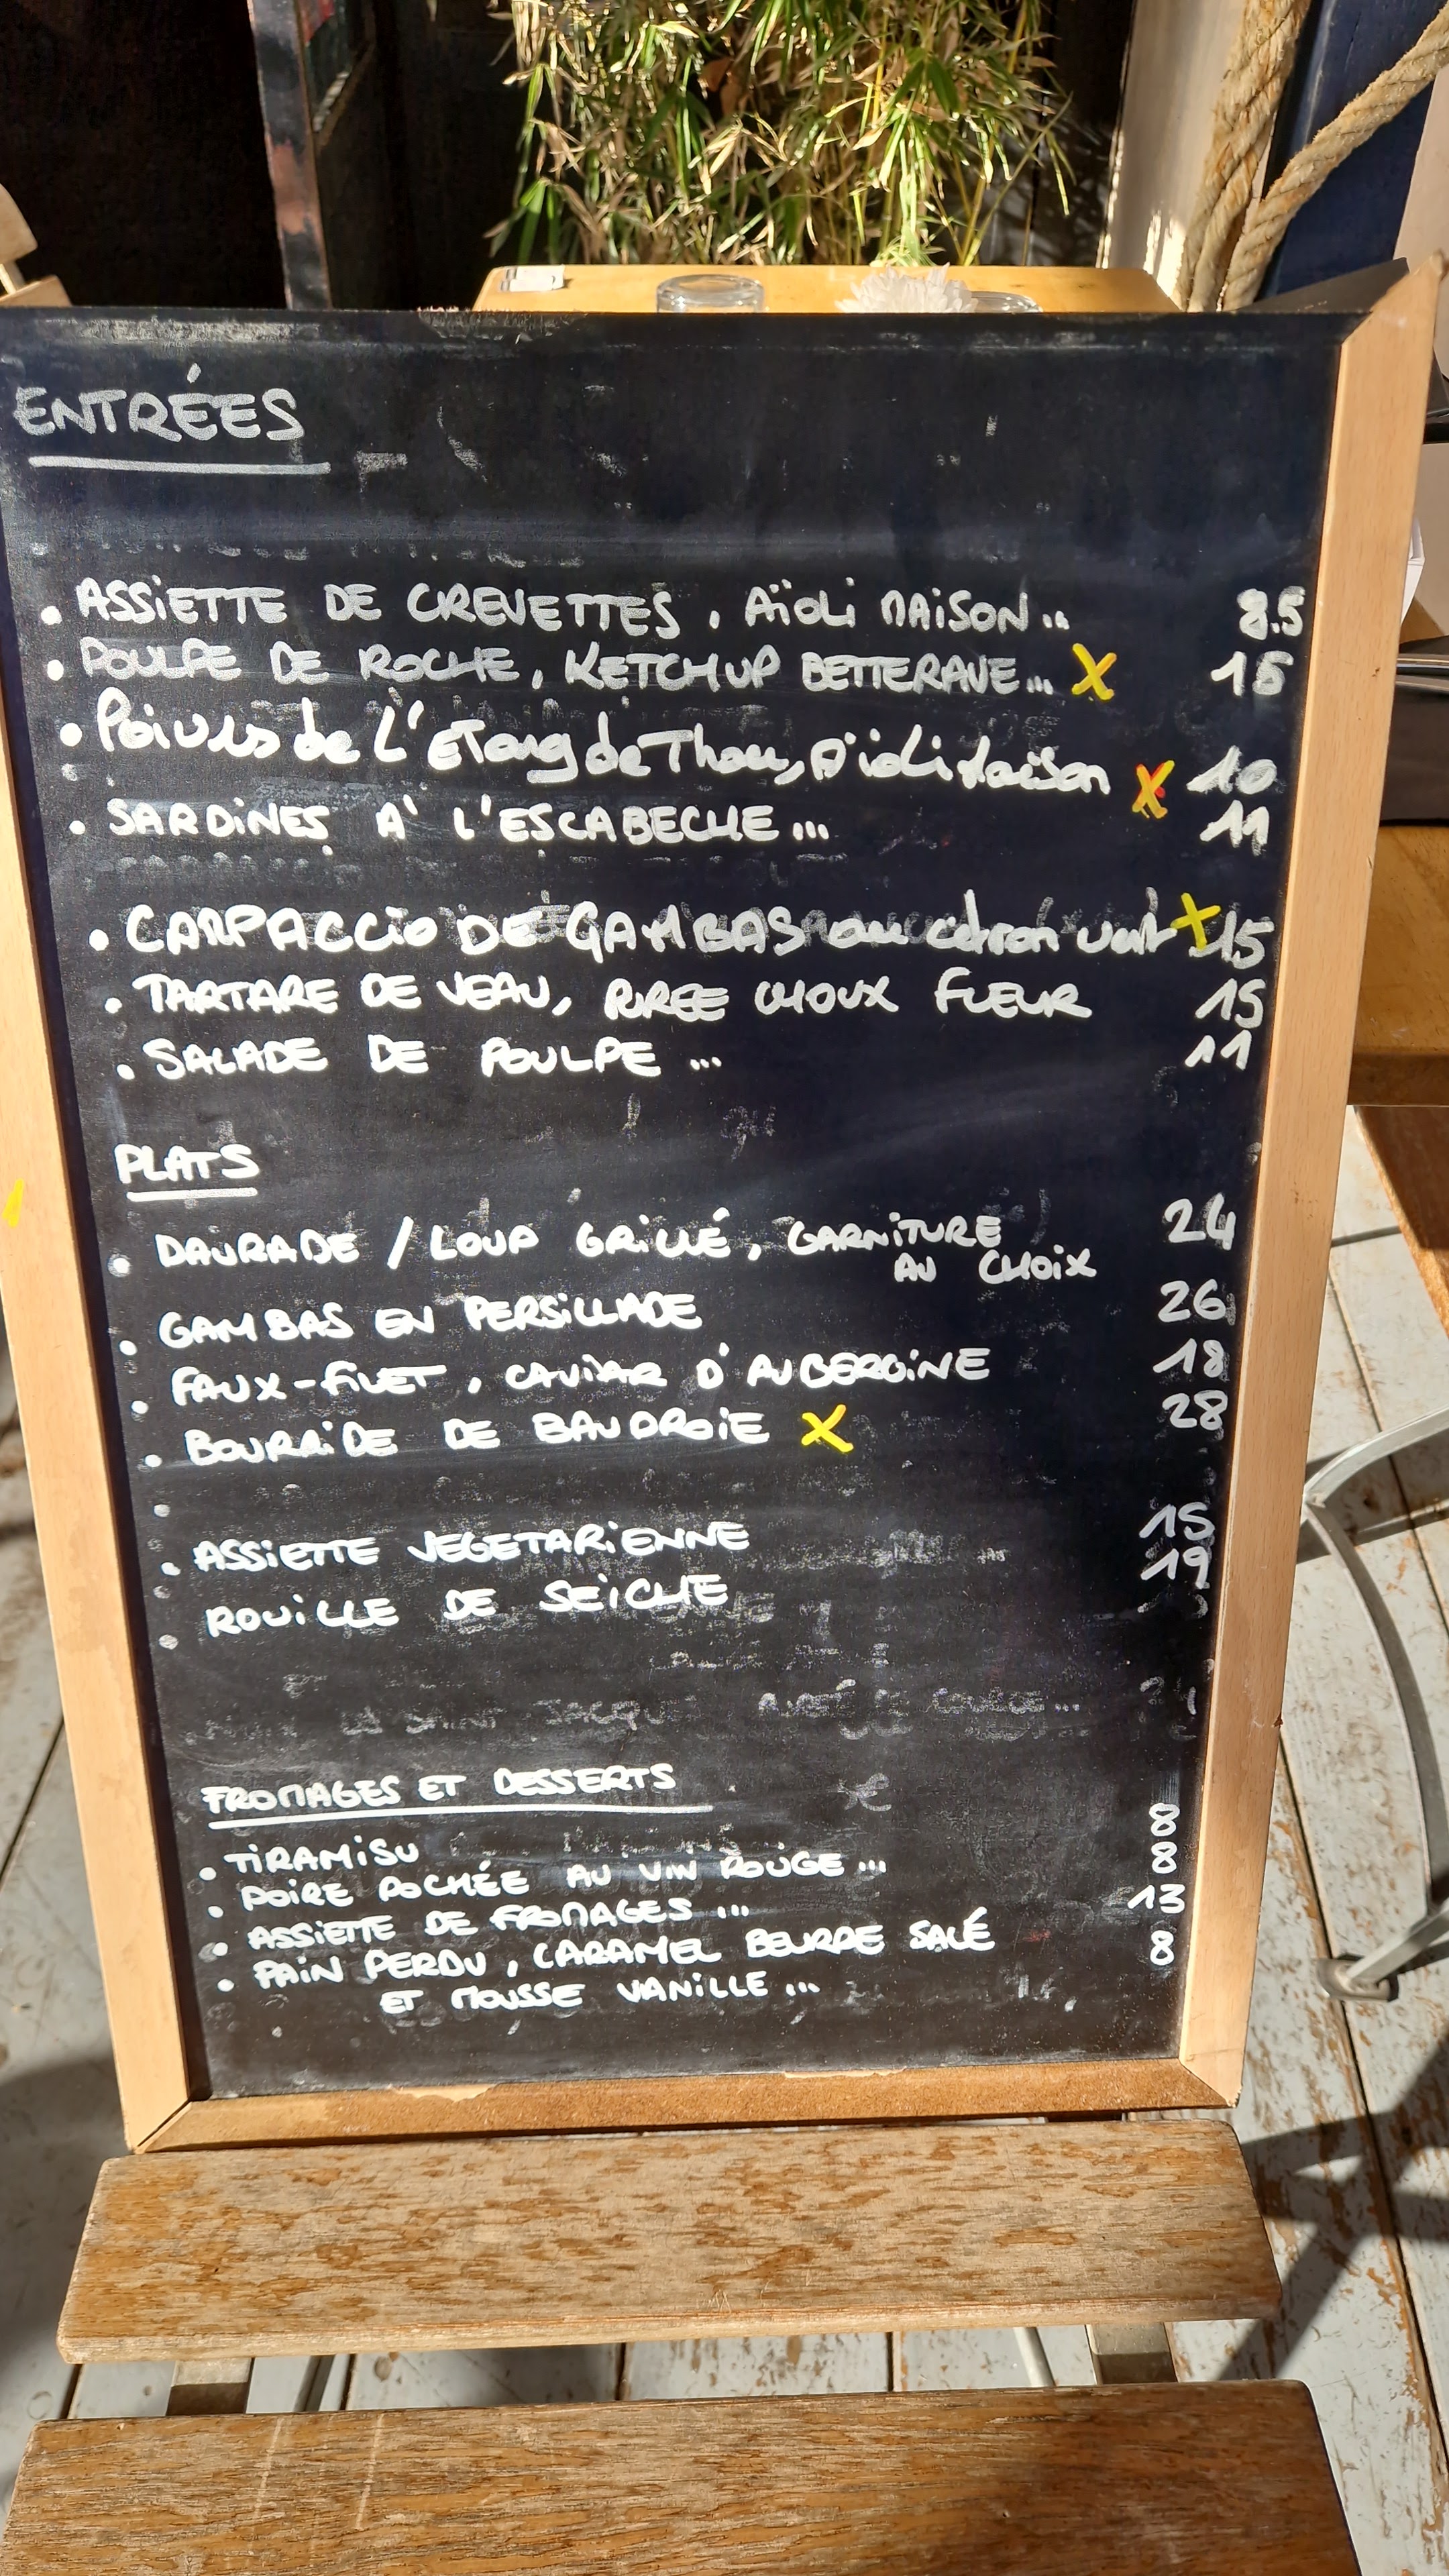 ENTRÉES
. ASSIETTE DE CREVETTES, AÏOLI MAISON.. 8.5
. POULPE DE ROCHE, KETCHUP BETTERAVE... X 15
. de L'Etang de Thau, Aïoli Maison X 10
. SARDINES A' L'ESCABECHE... 11
. CARPACCIO DE GAMBAS au citron vert X 15
. TARTARE DE VEAU, PUREE CHOUX FLEUR 15
. SALADE DE POULPE ... 11
PLATS
. DAURADE / LOUP GRILLÉ, GARNITURE 24
AU CHOIX
. GAMBAS EN PERSILLADE 26
. FAUX-FILET, CAVIAR D'AUBERGINE 18
. BOURRIDE DE BAUDROIE X 28
. ASSIETTE VEGETARIENNE 15
. ROUILLE DE SEICHE 19
SAINT JACQUES
FROMAGES ET DESSERTS
. TIRAMISU 8
. POIRE POCHÉE AU VIN ROUGE ... 8
. ASSIETTE DE FROMAGES ... 13
. PAIN PERDU, CARAMEL BEURRE SALÉ 8
ET MOUSSE VANILLE ...